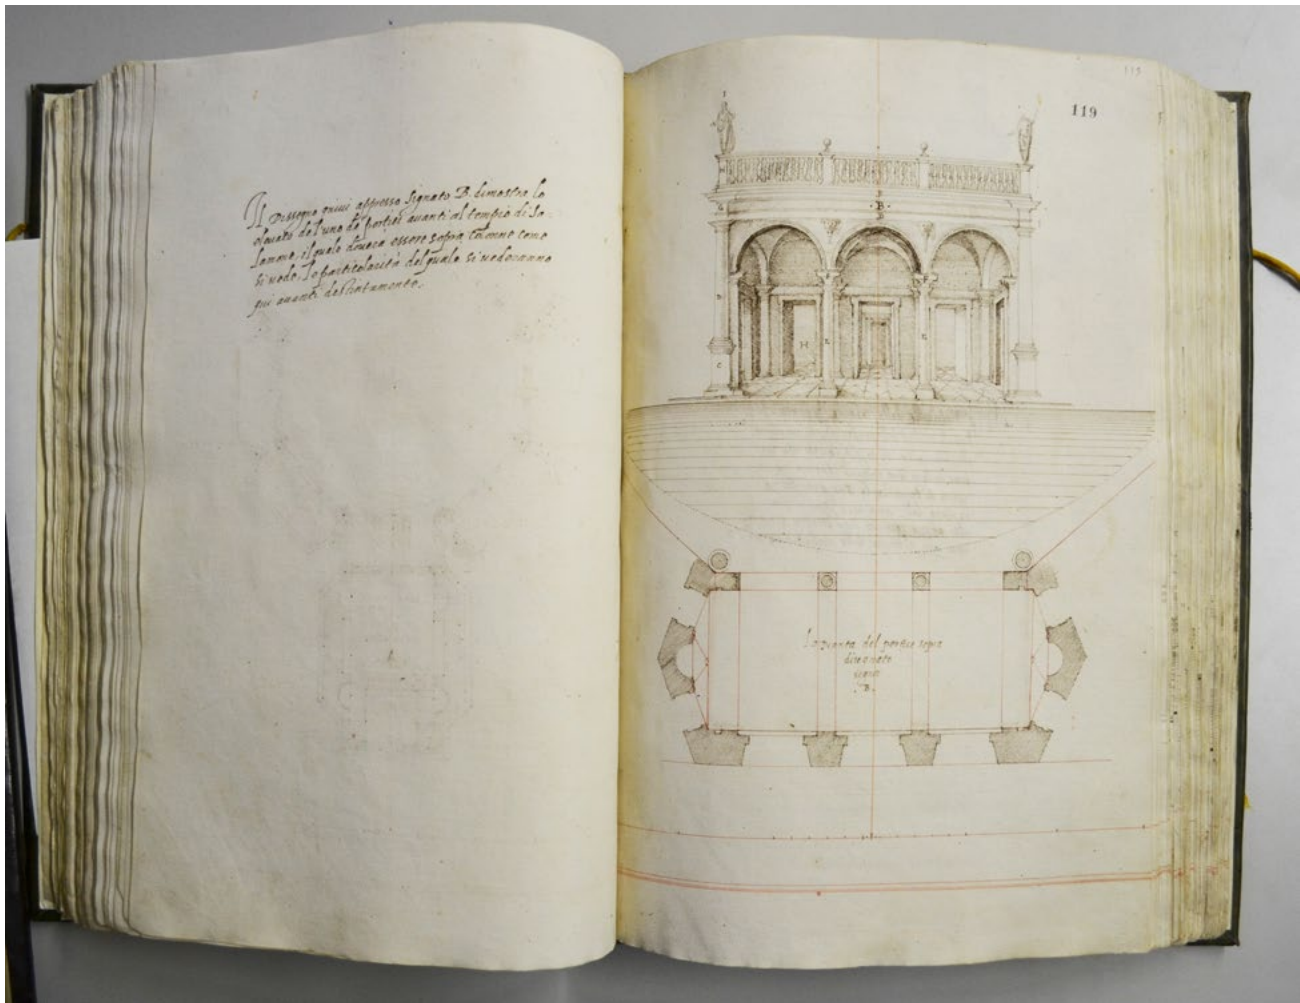 Il Dissegno quivi appresso signato B. dimostra lo
elevato de l'uno de portici avanti al tempio di Sa=
lamone, il quale doveva essere sopra colonne come
si vede, le particolarità del quale si vederanno
qui avanti destintamente.
119
119
.B.
H
C
La pianta del portico sopra
disegnato
segnato
.B.